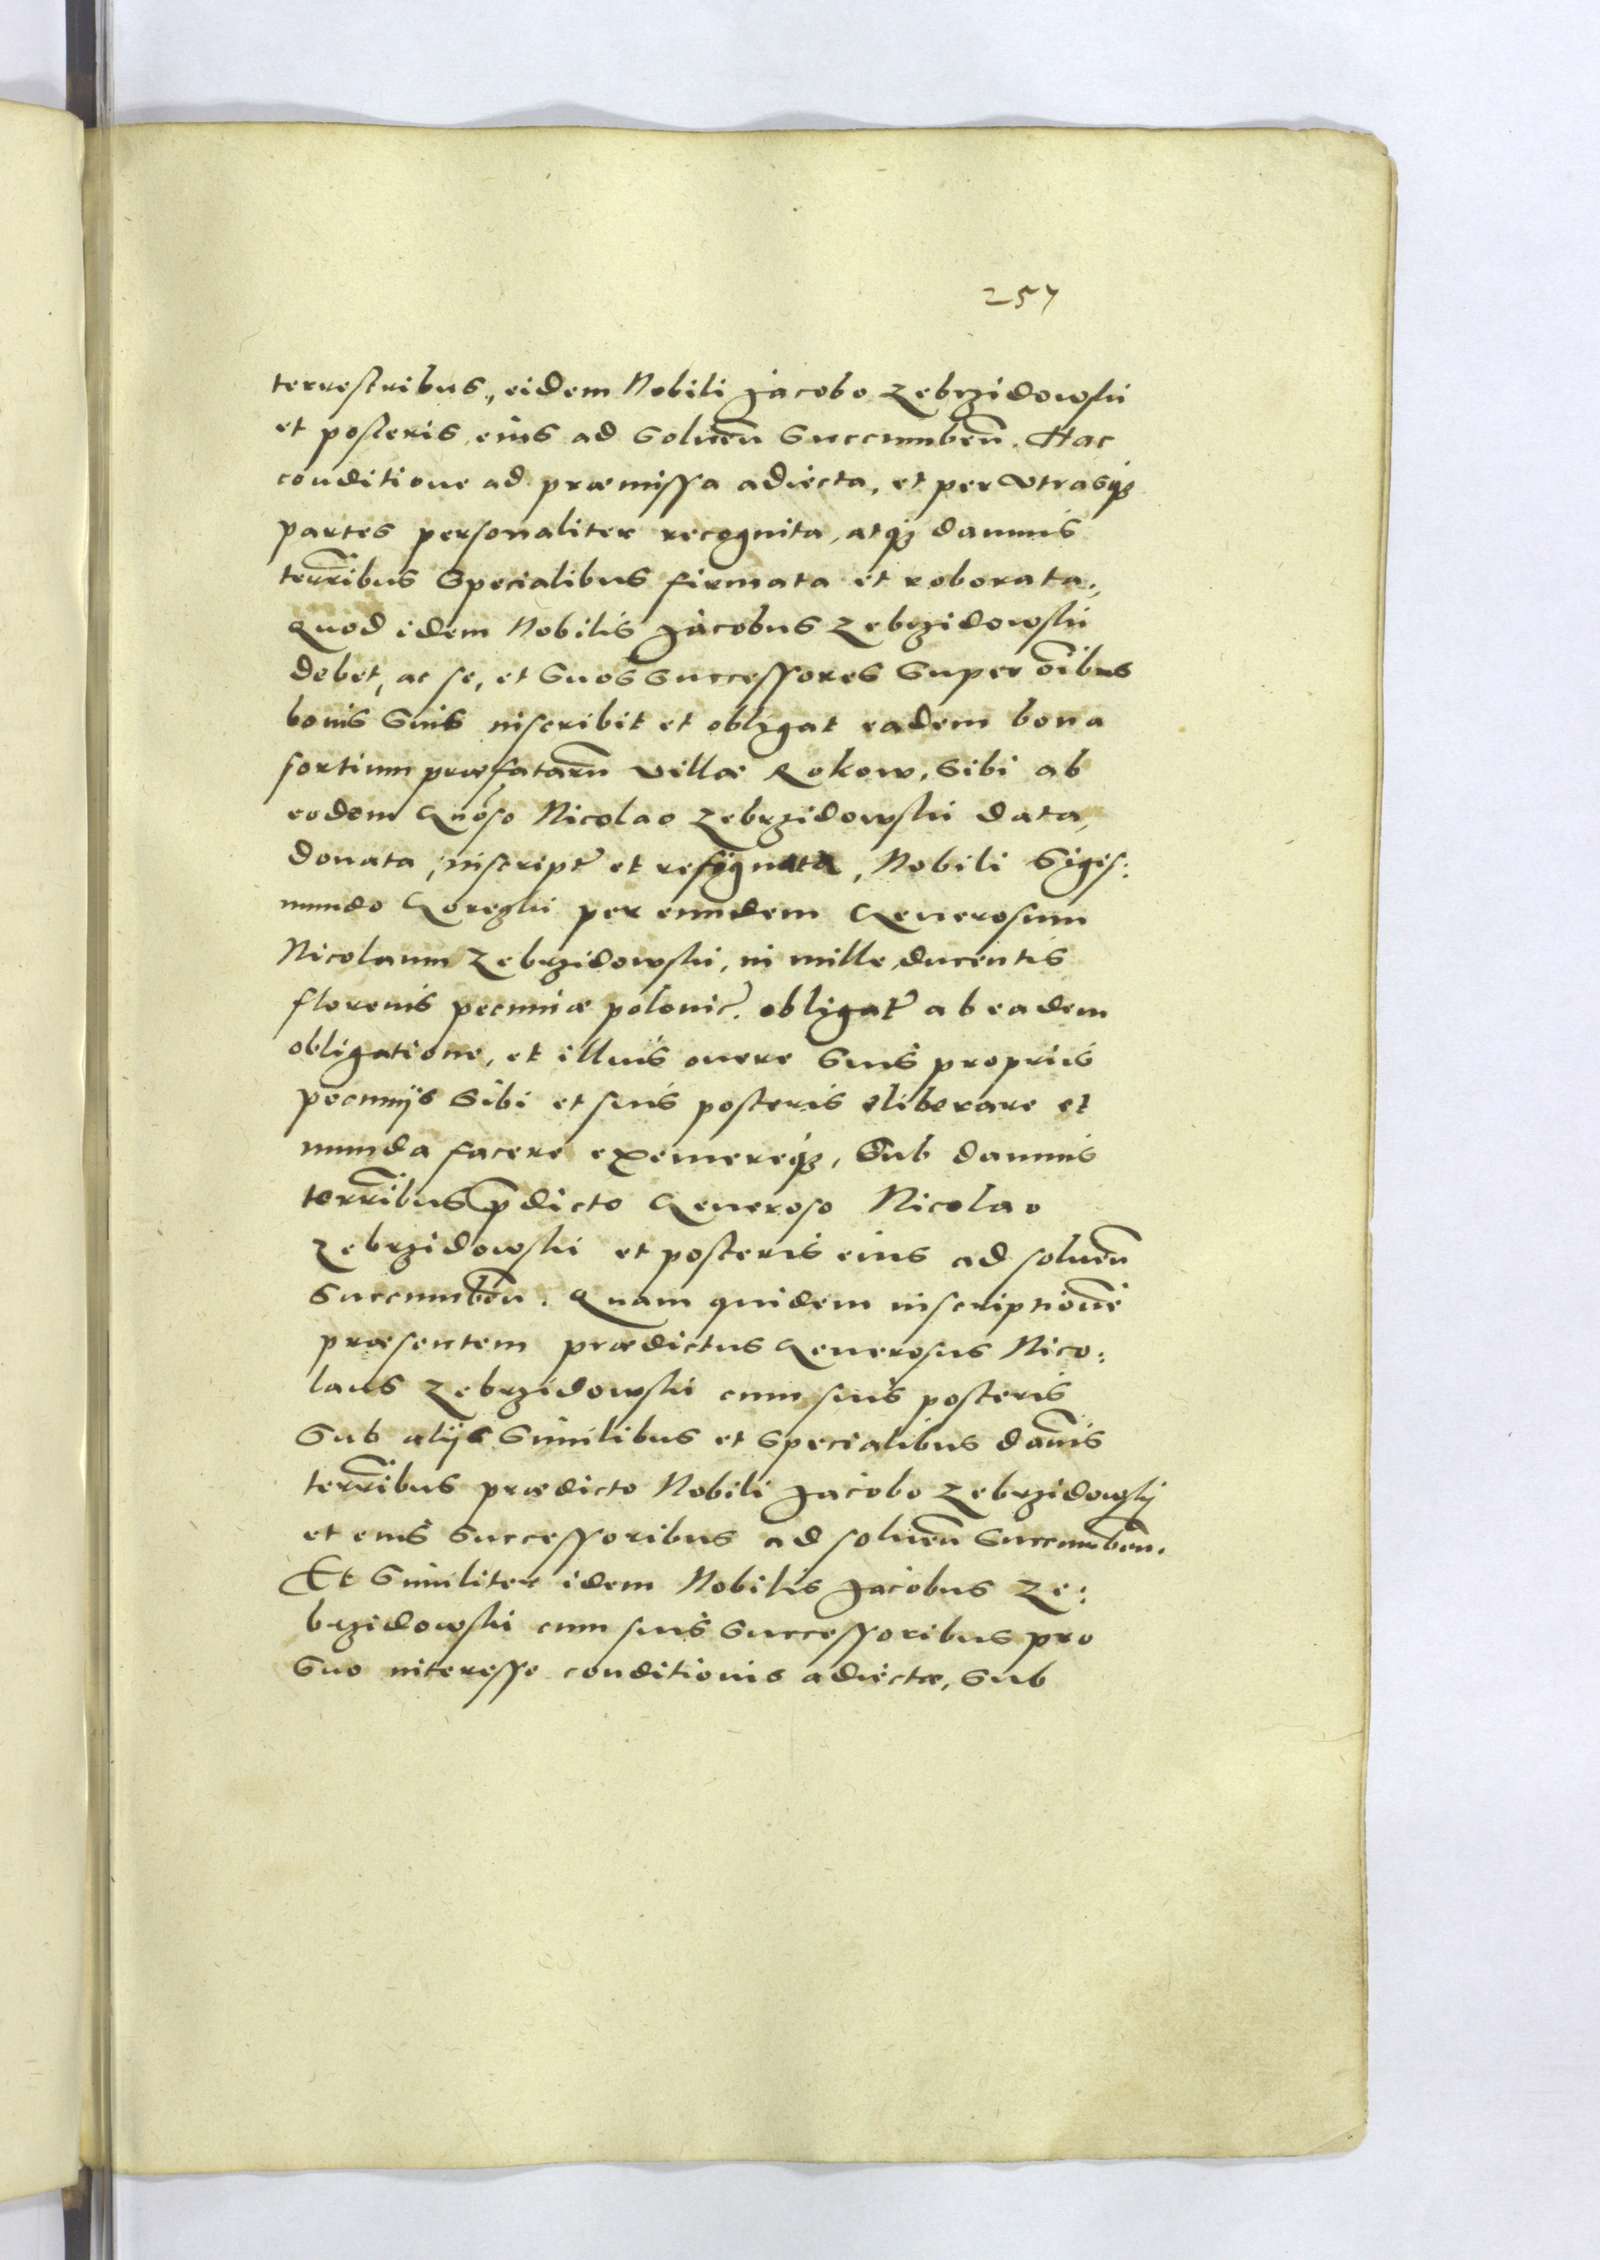 257
terrestribus, eidem Nobili Jacobo Zebrzidowski
et posteris eius ad soluen̄ succumben̄. Hac
conditione ad præmissa adiecta, et per vtrasq₃
partes personaliter recognita, atq₃ damnis
terrīibus specialibus firmata et roborata.,
Quod idem Nobilis Jacobus Zebrzidowski
debet, ac se, et suos successores super om̄ibus
bonis suis inscribit et obligat eadem bona
sortium præfatarū villæ Rokow, sibi ab
eodem Gnōso Nicolao Zebrzidowski data,
donata, inscript' et resignata, Nobili Sigis:
mundo Goreski per eundem Generosum
Nicolaum Zebrzidowski, in mille ducentis
florenis pecuniæ polonic'. obligat' ab eadem
obligatione, et illius onere suis propriis
pecuniis sibi et suis posteris eliberare et
munda facere exemereq₃, Sub damnis
terrīibus p̄dicto Generoso Nicolao
Zebrzidowski et posteris eius ad soluen̄
succumben̄. Quam quidem inscriptionē
præsentem prædictus Generosus Nico:
laus Zebrzidowski cum suis posteris
sub alijs similibus et specialibus dam̄is
terrīibus prædicto Nobili Jacobo Zebrzidowskj
et eius successoribus ad soluen̄ succumben̄.
Et similiter idem Nobilis Jacobus Ze:
brzidowski cum suis successoribus pro
suo interesse conditionis adiectæ, sub